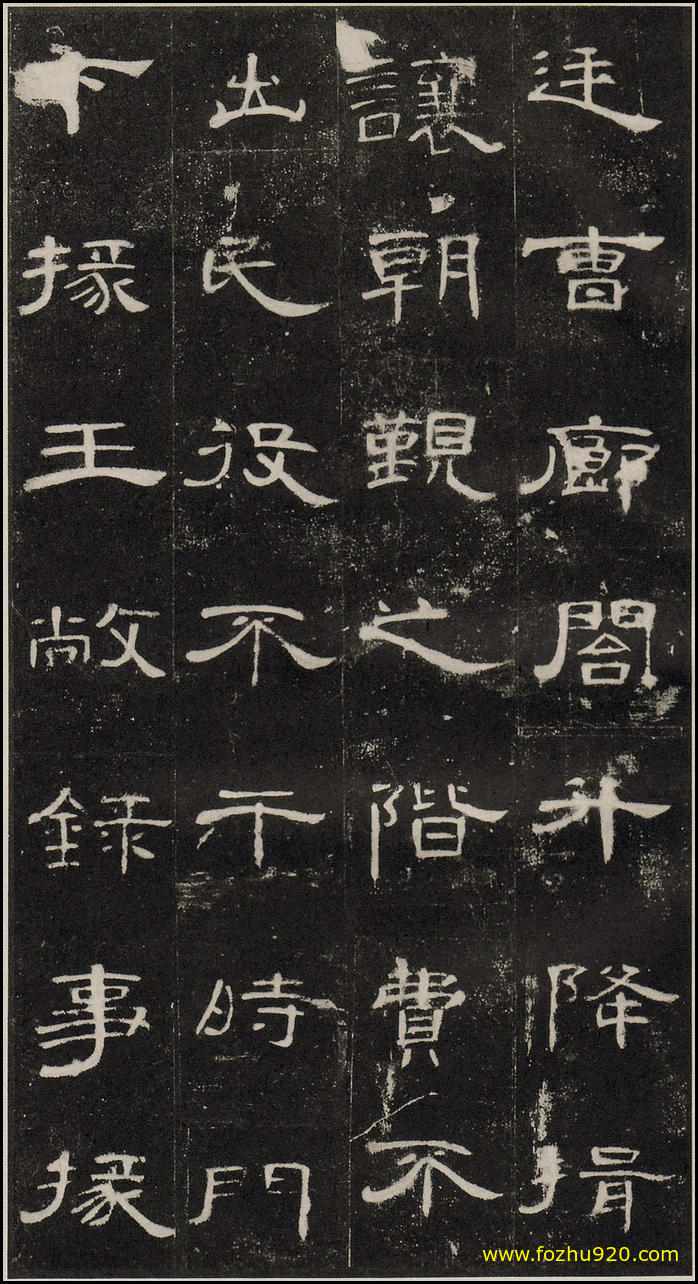 廷曹廊閤升降揖
讓朝覲之階費不
出民役不干時門
下掾王敞錄事掾
www.fozhu920.com